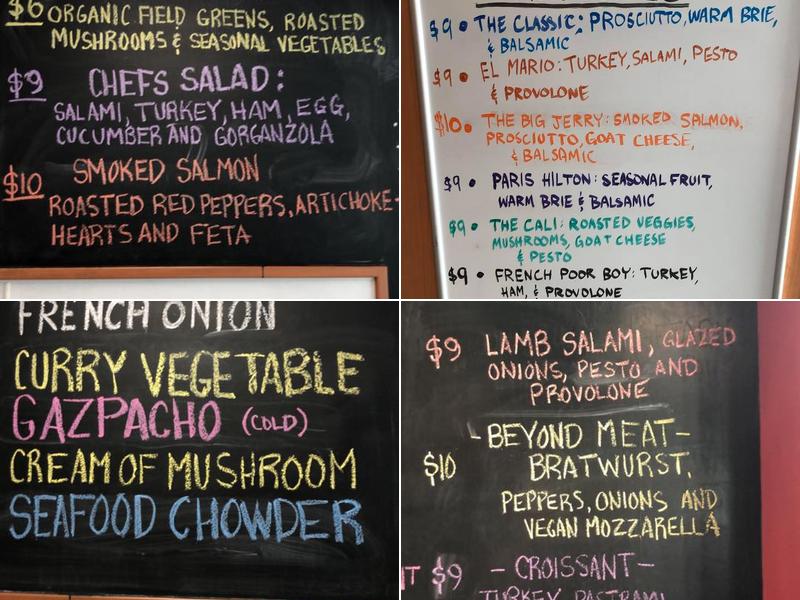 $6 ORGANIC FIELD GREENS, ROASTED
MUSHROOMS & SEASONAL VEGETABLES
$9 CHEFS SALAD:
SALAMI, TURKEY, HAM, EGG,
CUCUMBER AND GORGANZOLA
$10 SMOKED SALMON
ROASTED RED PEPPERS, ARTICHOKE-
HEARTS AND FETA
$9 • THE CLASSIC: PROSCIUTTO, WARM BRIE,
& BALSAMIC
$9 • EL MARIO: TURKEY, SALAMI, PESTO
& PROVOLONE
$10 • THE BIG JERRY: SMOKED SALMON,
PROSCIUTTO, GOAT CHEESE,
& BALSAMIC
$9 • PARIS HILTON: SEASONAL FRUIT,
WARM BRIE & BALSAMIC
$9 • THE CALI: ROASTED VEGGIES,
MUSHROOMS, GOAT CHEESE
& PESTO
$9 • FRENCH POOR BOY: TURKEY,
HAM, & PROVOLONE
FRENCH ONION
CURRY VEGETABLE
GAZPACHO (COLD)
CREAM OF MUSHROOM
SEAFOOD CHOWDER
$9 LAMB SALAMI, GLAZED
ONIONS, PESTO AND
PROVOLONE
$10 - BEYOND MEAT -
BRATWURST,
PEPPERS, ONIONS AND
VEGAN MOZZARELLA
$9 - CROISSANT -
TURKEY, PASTRAMI,